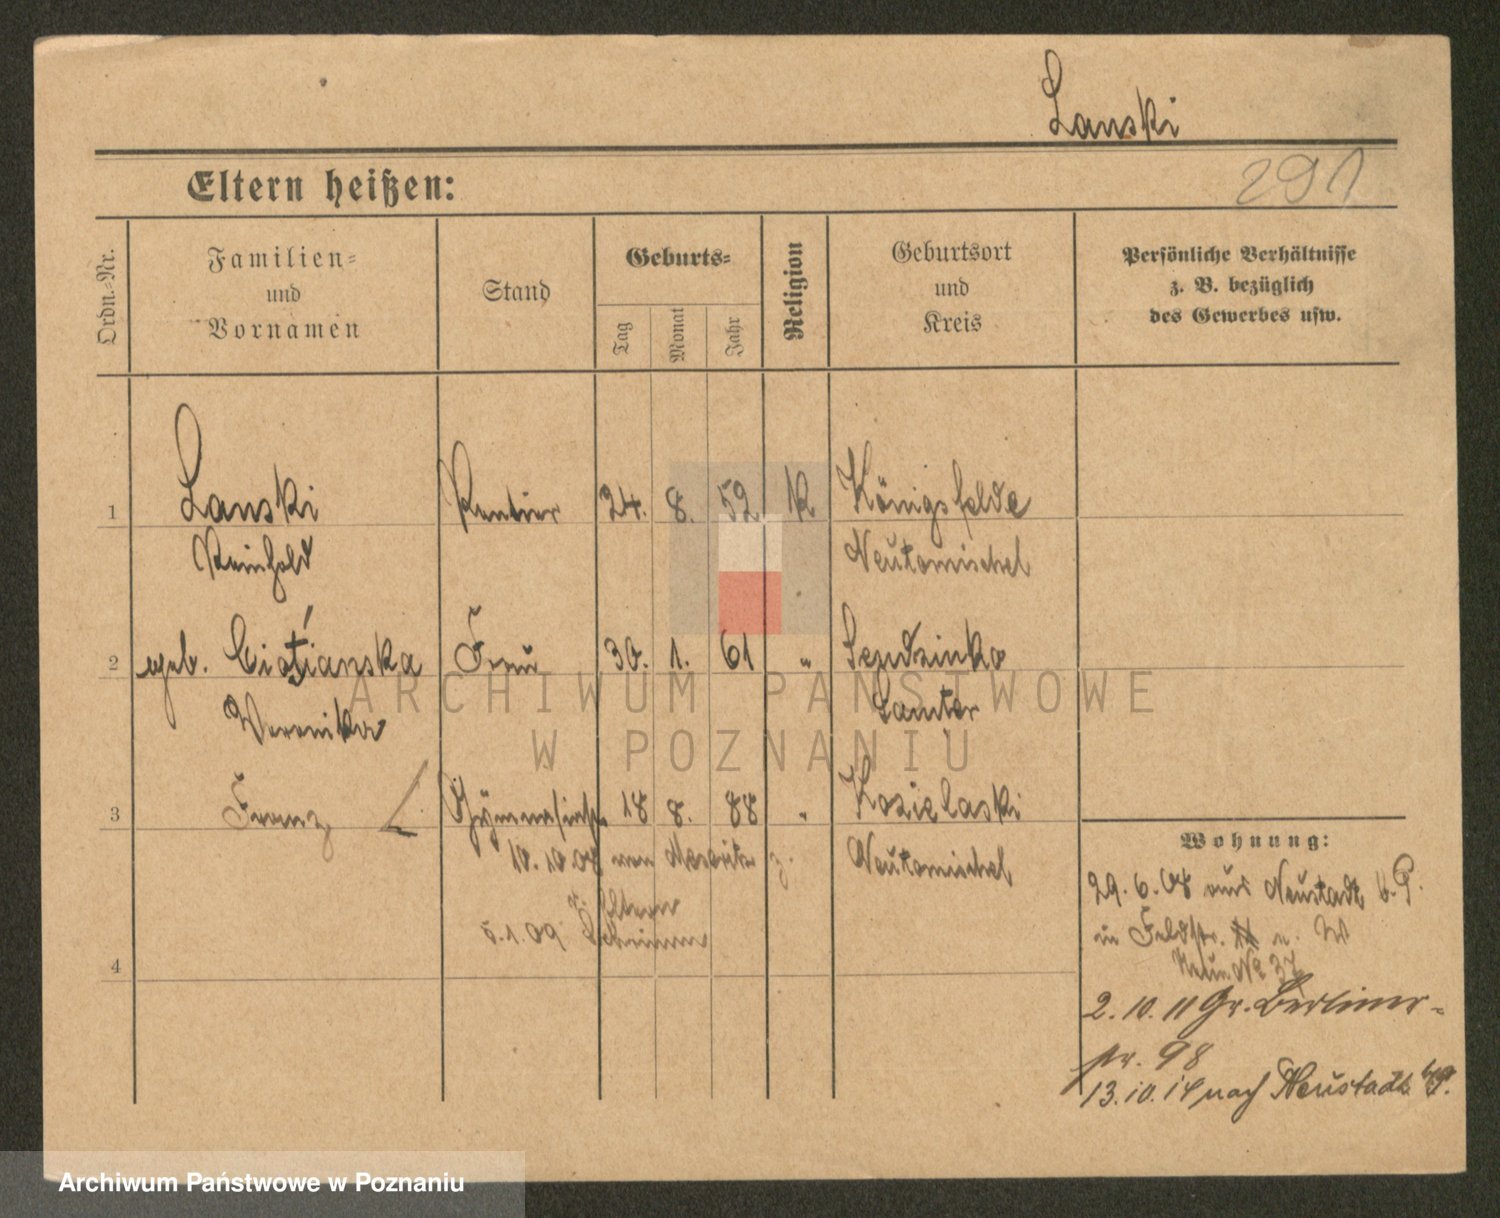 Lanski
291
Eltern heißen:
Ordn.-Nr.
Familien-
und
Vornamen
Stand
Geburts-
Tag
Monat
Jahr
Religion
Geburtsort
und
Kreis
Persönliche Verhältnisse
z. B. bezüglich
des Gewerbes usw.
1 Lanski Rentier 24. 8. 52 K Königsfelde
Reinhold Neutomischel
2 geb. Frau 30. 1. 61 " Sendzinko
Veronika Samter
3 Franz 18 8. 88 " Kozielaski
10.10.08 von Neutomischel
z. Eltern
5.1.09 Schrimm
4
Wohnung:
29.6.08 aus Neustadt b. P.
in Feldstr.
Neue No 37
2.10.11 Gr. Berliner-
str. 98
13.10.14 nach Neustadt
ARCHIWUM PAŃSTWOWE
W POZNANIU
Archiwum Państwowe w Poznaniu